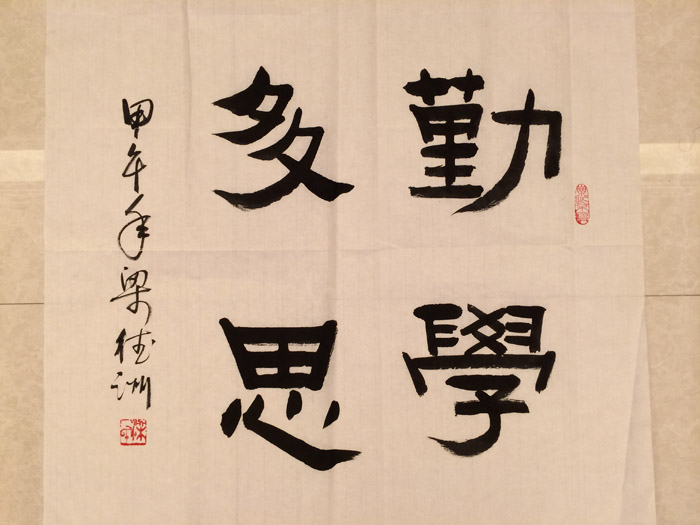 勤學
多思
甲午年梁德洲